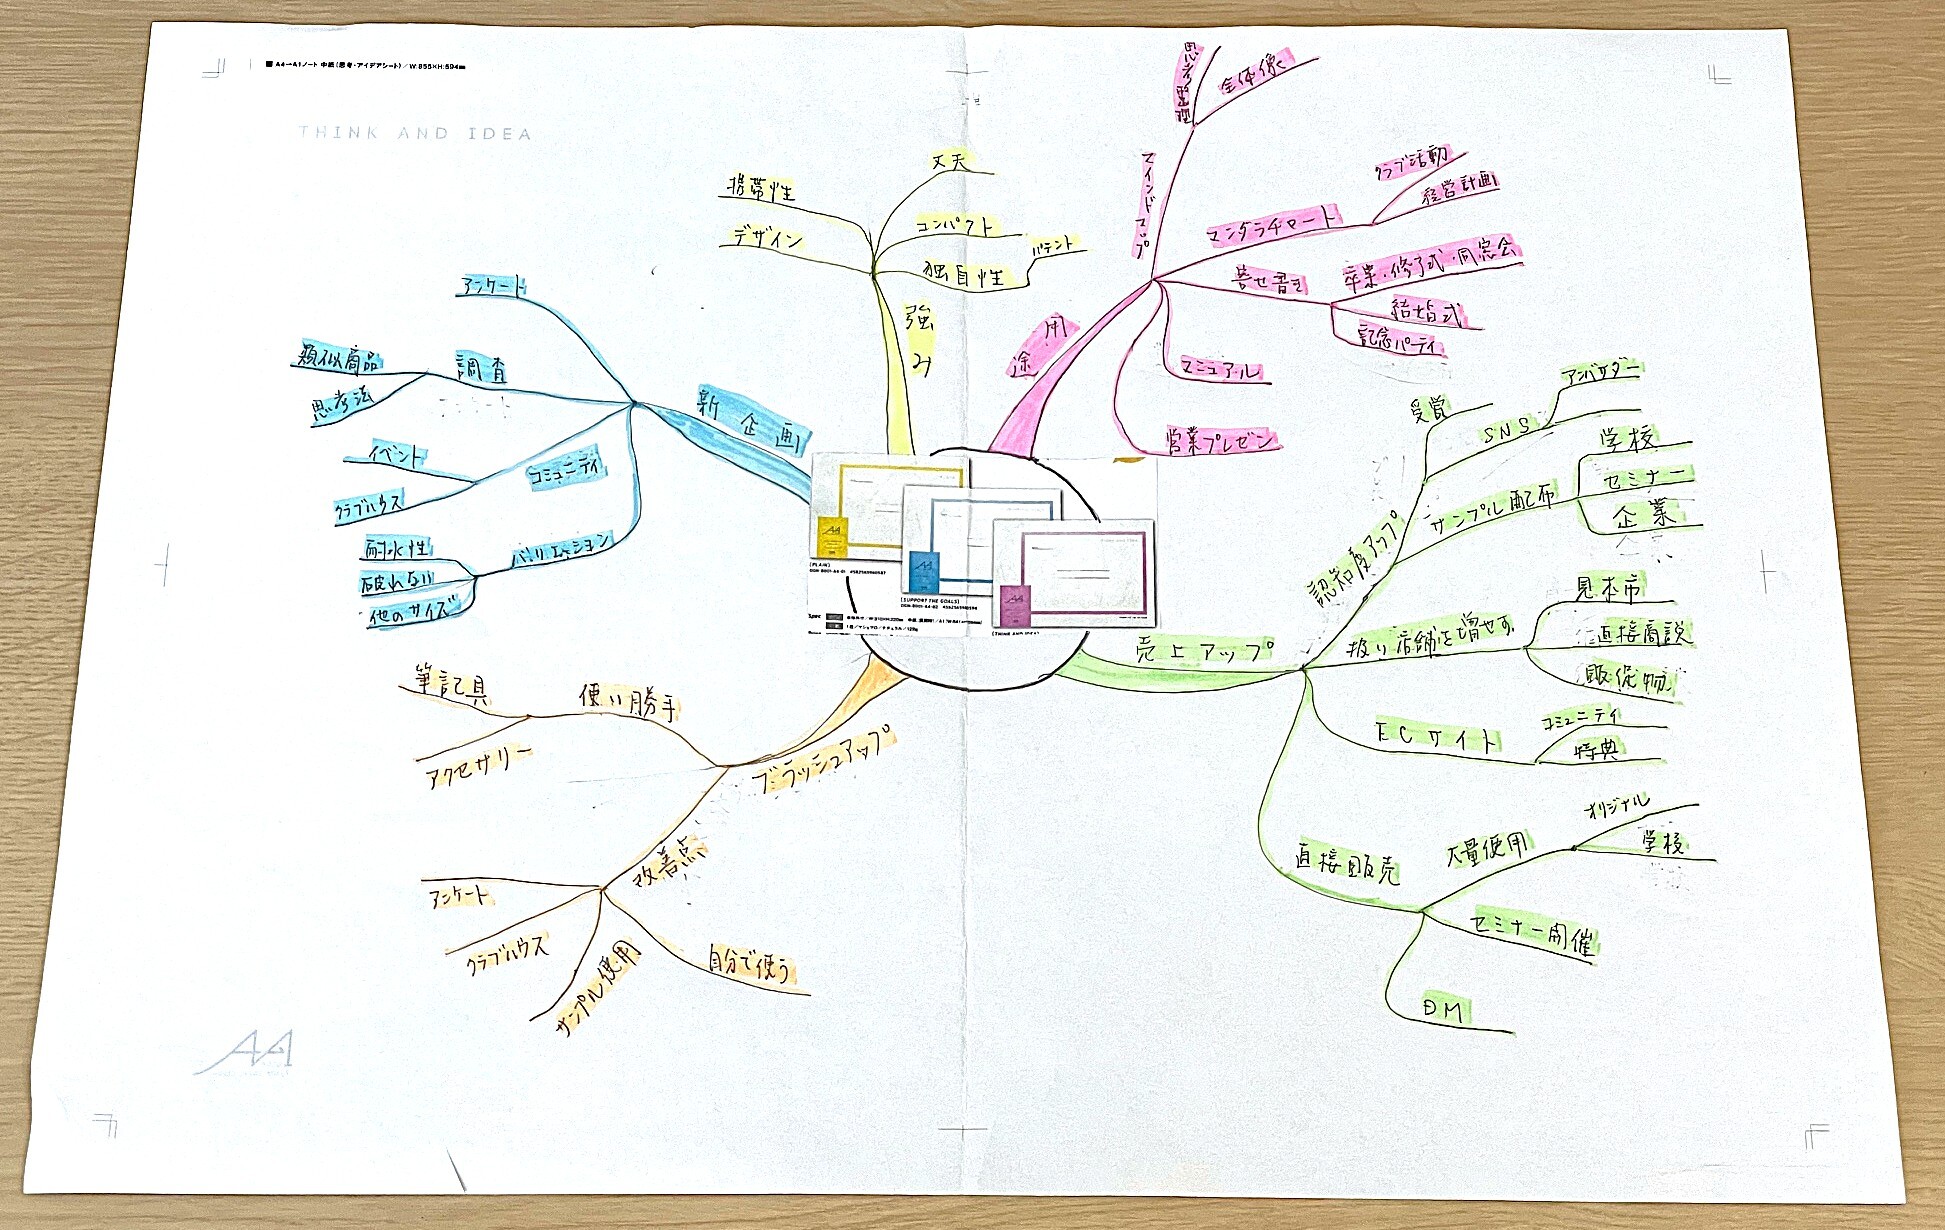 ■ A4→A1ノート 中紙(思考・アイデアシート)/W:855×H:594mm
THINK AND IDEA
強み
携帯性
デザイン
丈夫
コンパクト
独自性
パテント
用途
マインドマップ
思考整理
全体像
マンダラチャート
クラブ活動
経営計画
寄せ書き
卒業・修了式・同窓会
結婚式
記念パーティ
マニュアル
営業プレゼン
新企画
アンケート
調査
類似商品
思考法
コミュニティ
イベント
クラブハウス
バリエーション
耐水性
破れない
他のサイズ
売上アップ
認知度アップ
受賞
SNS
アンバサダー
サンプル配布
学校
セミナー
企業
扱い店舗を増やす
見本市
直接商談
販促物
ECサイト
コミュニティ
特典
直接販売
大量使用
オリジナル
学校
セミナー開催
DM
ブラッシュアップ
使い勝手
筆記具
アクセサリー
改善点
アンケート
クラブハウス
サンプル使用
自分で使う
[PLAIN]
[SUPPORT THE GOALS]
[THINK AND IDEA]
Spec
AA